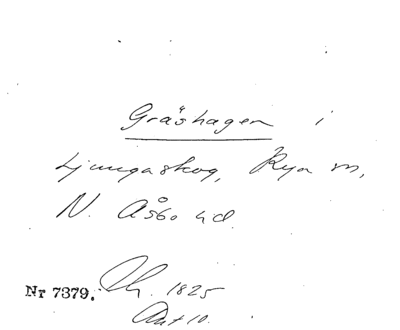 Gräshagen i
Ljungaskog, Rya sn,
N. Åsbo hd.
Nr 7379. 1825
Ant 10.